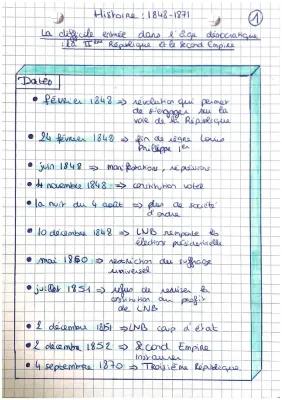 Histoire : 1848-1871
1
La difficile entrée dans l'âge démocratique
La IIème République et le Second Empire
Dates
• février 1848 => révolution qui permet
de s'engager sur la
voie de la République
• 24 février 1848 => fin de règne Louis
Philippe Ier
• juin 1848 => manifestation, répression
• 4 novembre 1848 => constitution votée
• la nuit du 4 août => plus de société
d'ordre
• 10 décembre 1848 => LNB remporte les
élections présidentielle
• mai 1850 => restriction du suffrage
universel
• juillet 1851 => refus de réviser la
constitution au profit
de LNB
• 2 décembre 1851 => LNB coup d'état
• 2 décembre 1852 => Second Empire
instauré
• 4 septembre 1870 => Troisième République